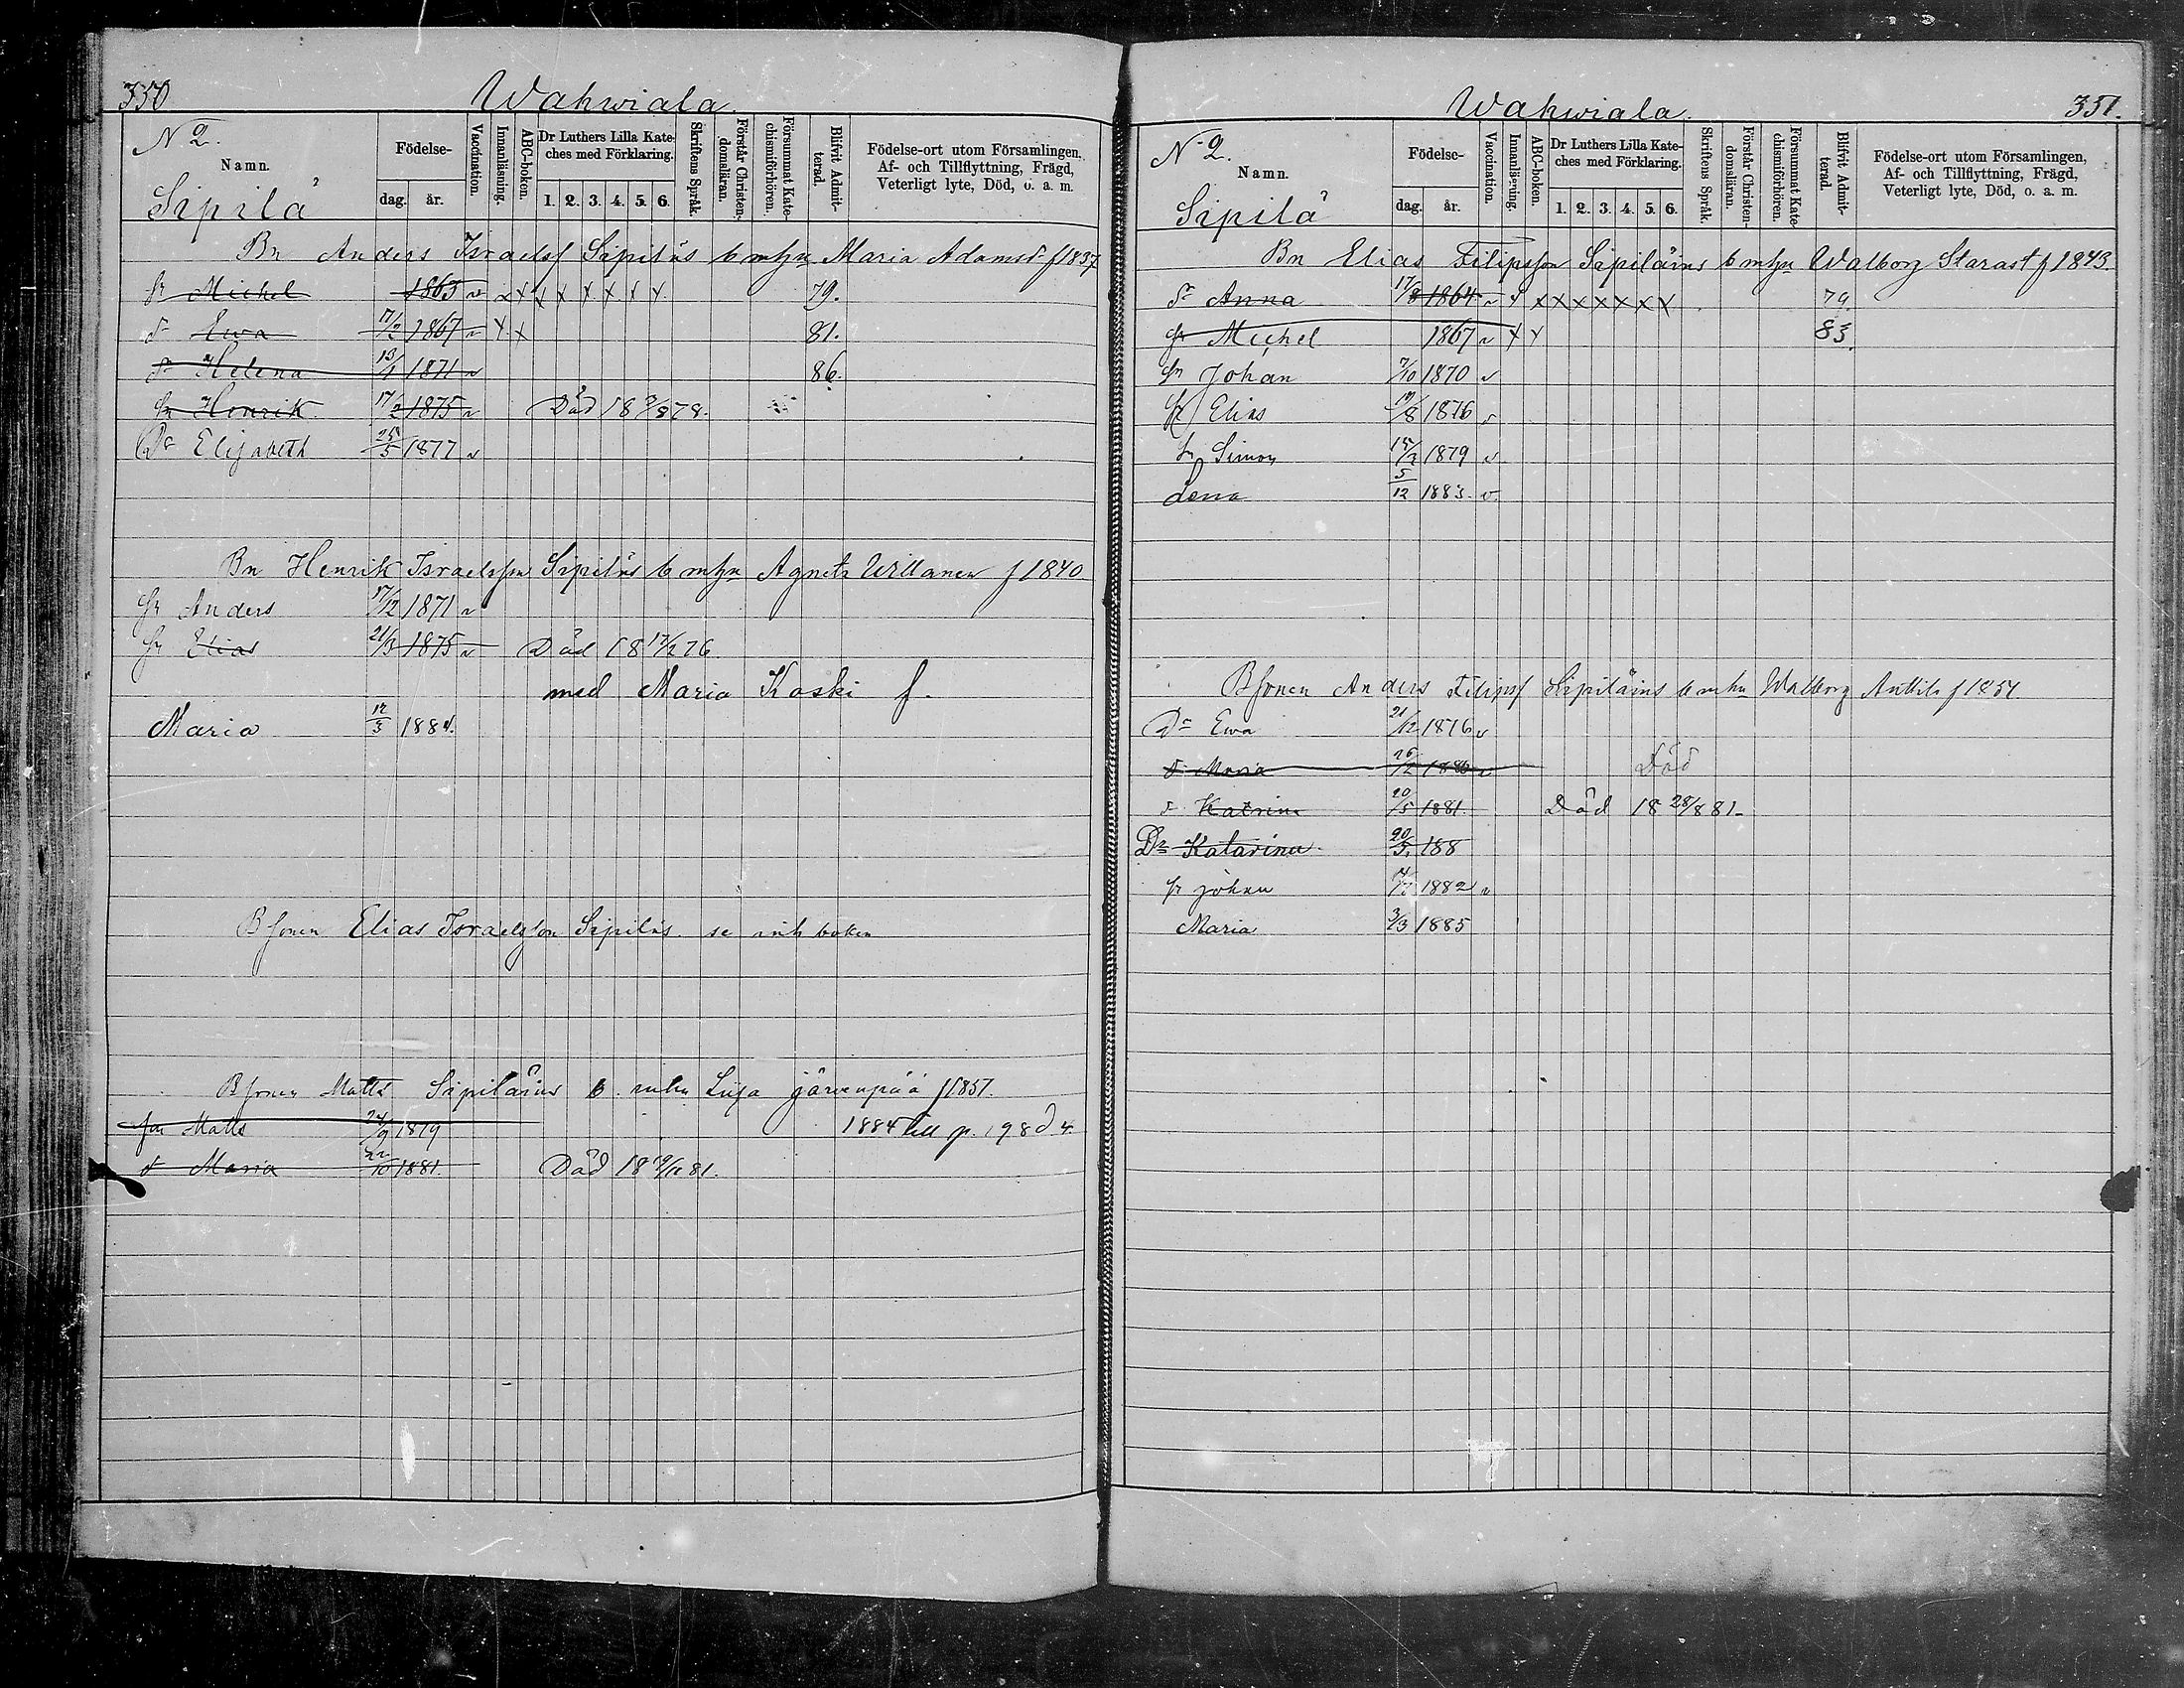 350
Wahwiala
N 2.
Namn.
Sipilä
Födelse-
dag. år.
Vaccination.
Innanläsning.
ABC-boken.
Dr Luthers Lilla Kate-
ches med Förklaring.
1. 2. 3. 4. 5. 6.
Skriftens Språk.
Förstår Christen-
domsläran.
Försummat Kate-
chismiförhören.
Blifvit Admit-
terad.
Födelse-ort utom Församlingen,
Af- och Tillflyttning, Frägd,
Veterligt lyte, Död, o. a. m.
Bn Anders Israelsf Sipiläs b m hu Maria Adamsdr f 1837
Sn Michel 1863 v x x x x x x x x 79.
dr Ewa 17/2 1867 v x x 81.
dr Helena 13/1 1871 v 86.
Sn Henrik 17/2 1875 v Död 18 9/8 78.
Dr Elisabeth 25/5 1877 v
Bn Henrik Israelsson Sipiläs b m hu Agneta Willanen f 1840
Sn Anders 17/12 1871 v
Sn Elias 21/3 1875 v Död 18 17/2 76
med Maria Koski f.
Maria 12/3 1884.
B sonen Elias Israelsson Sipiläs se boken
B sonen Matts Sipiläins b m hu Lisa Järvenpää f 1851.
son Matts 24/9 1879 1884 till p. 198
dr Maria 22/10 1881. Död 18 81.
Wahwiala.
351.
N 2.
Namn.
Sipilä
Födelse-
dag. år.
Vaccination.
Innanläsning.
ABC-boken.
Dr Luthers Lilla Kate-
ches med Förklaring.
1. 2. 3. 4. 5. 6.
Skriftens Språk.
Förstår Christen-
domsläran.
Försummat Kate-
chismiförhören.
Blifvit Admit-
terad.
Födelse-ort utom Församlingen,
Af- och Tillflyttning, Frägd,
Veterligt lyte, Död, o. a. m.
Bn Elias Filipsson Sipiläins b m hu Walborg Starast f 1843.
dr Anna 17/8 1864 v x x x x x x x x 79.
Sn Michel 1867 v x x 83.
Sn Johan 7/10 1870 v
Sn Elias 19/8 1876 v
Sn Simon 15/2 1879 v
Lena 5/12 1883. v.
B sonen Anders Filipsf Sipiläins b m hu Walborg Anttila f 1851
Dr Ewa 21/12 1876 v
dr Maria 26/2 1880 v Död
dr Katrina 20/5 1881. Död 18 28/8 81.
Dr Katarina 20/5. 188
Sn Johan 1882 v
Maria 3/3 1885